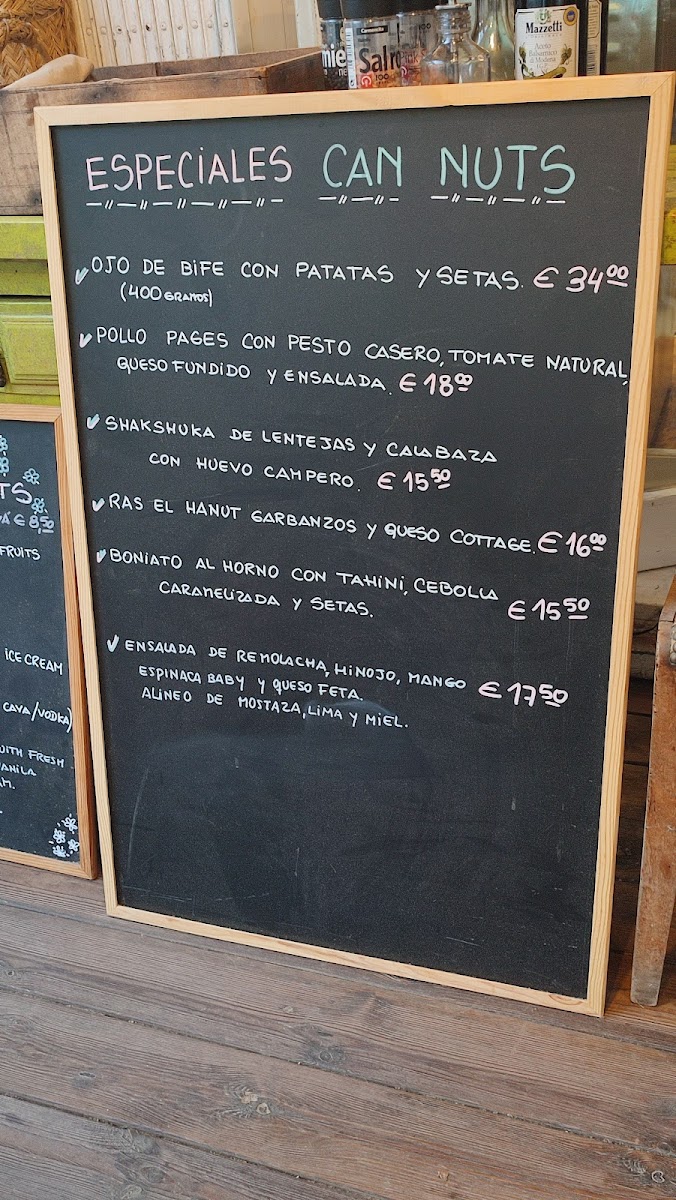 Mazzetti
Aceto
Balsamico
di Modena
Salm
100
ESPECIALES CAN NUTS
OJO DE BIFE CON PATATAS Y SETAS. € 34⁰⁰
(400 GRAMOS)
POLLO PAGES CON PESTO CASERO, TOMATE NATURAL,
QUESO FUNDIDO Y ENSALADA. € 18⁰⁰
SHAKSHUKA DE LENTEJAS Y CALABAZA
CON HUEVO CAMPERO. € 15⁵⁰
RAS EL HANUT GARBANZOS Y QUESO COTTAGE. € 16⁰⁰
BONIATO AL HORNO CON TAHINI, CEBOLLA
CARAMELIZADA Y SETAS. € 15⁵⁰
ENSALADA DE REMOLACHA, HINOJO, MANGO € 17⁵⁰
ESPINACA BABY Y QUESO FETA.
ALINEO DE MOSTAZA, LIMA Y MIEL.
TS
€ 8,50
FRUITS
ICE CREAM
CAVA/VODKA)
WITH FRESH
VANILA